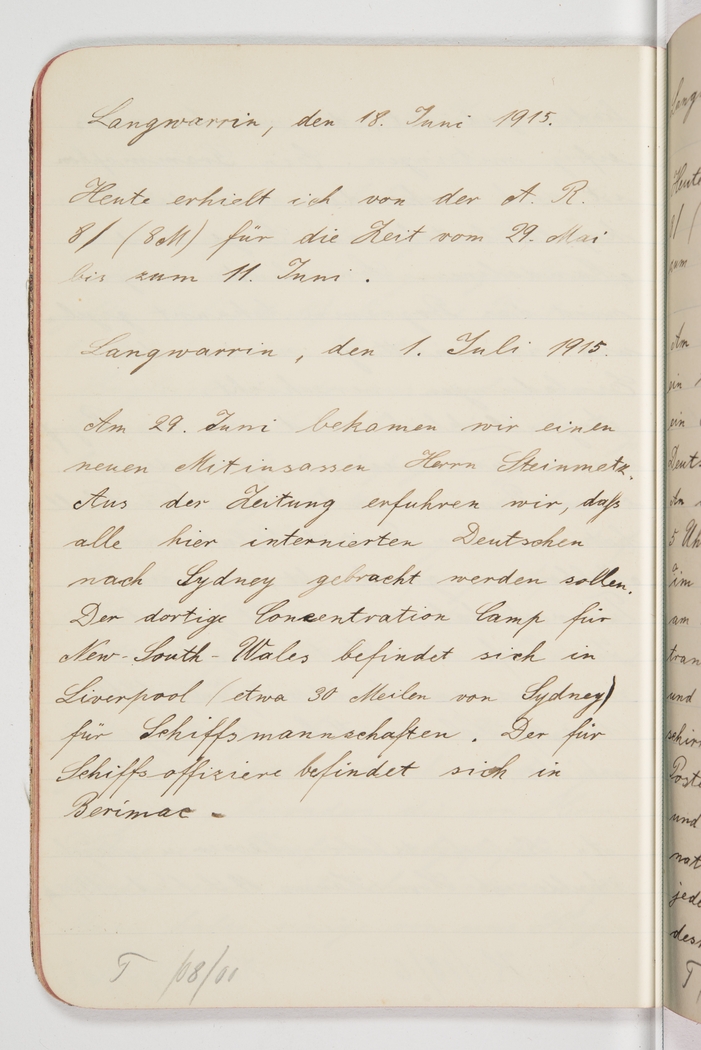 Langwarrin, den 18. Juni 1915.
Heute erhielt ich von der A. R.
8/ (8M) für die Zeit vom 29. Mai
bis zum 11. Juni.
Langwarrin, den 1. Juli 1915.
Am 29. Juni bekamen wir einen
neuen Mitinsassen Herrn Steinmetz.
Aus der Zeitung erfuhren wir, daß
alle hier internierten Deutschen
nach Sydney gebracht werden sollen.
Der dortige Concentration Camp für
New-South-Wales befindet sich in
Liverpool (etwa 30 Meilen von Sydney)
für Schiffsmannschaften. Der für
Schiffsoffiziere befindet sich in
Berimac -
T 108/01